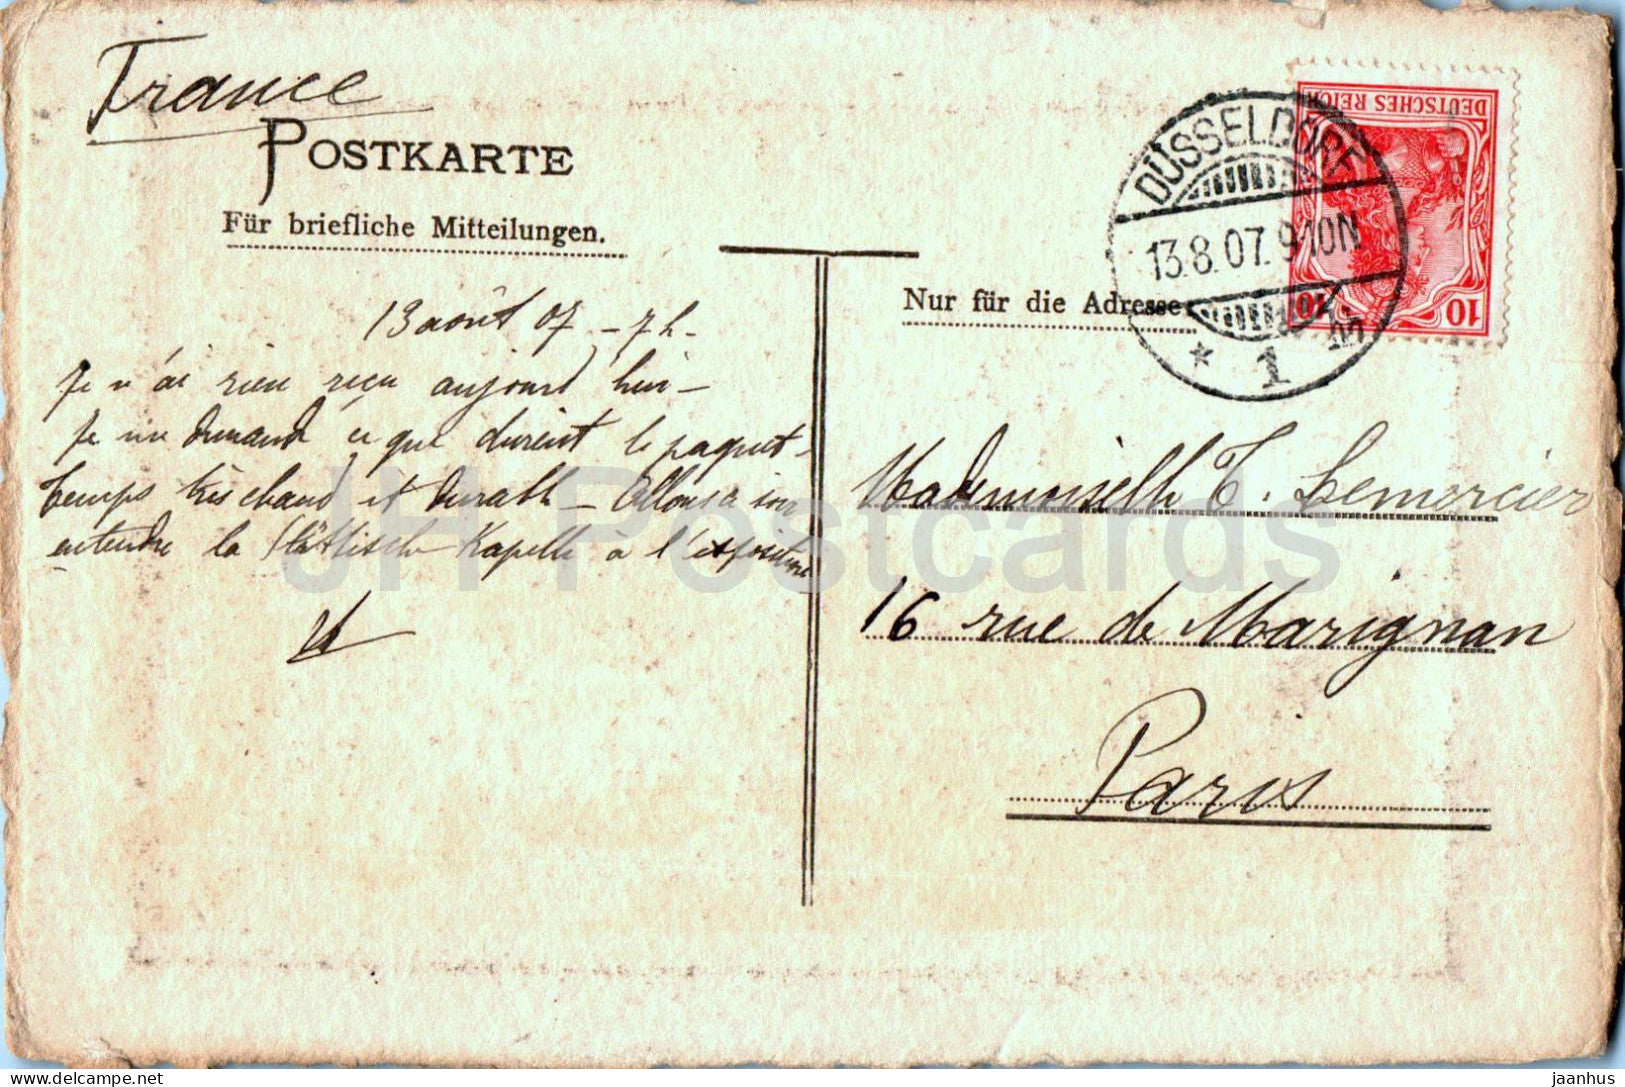 France
POSTKARTE
Für briefliche Mitteilungen.
13 août 07 - 7h-
Je n'ai rien reçu aujourd'hui -
Je me demande ce que devient le paquet -
Temps très chaud et durable - Allons ce soir
entendre la Städtische Kapelle à l'exposition
DEUTSCHES REICH
10
10
DÜSSELDORF
13.8.07. 9-10N
* 1 m
Nur für die Adresse
Mademoiselle T. Lemercier
16 rue de Marignan
Paris
JH Postcards
jaanhus